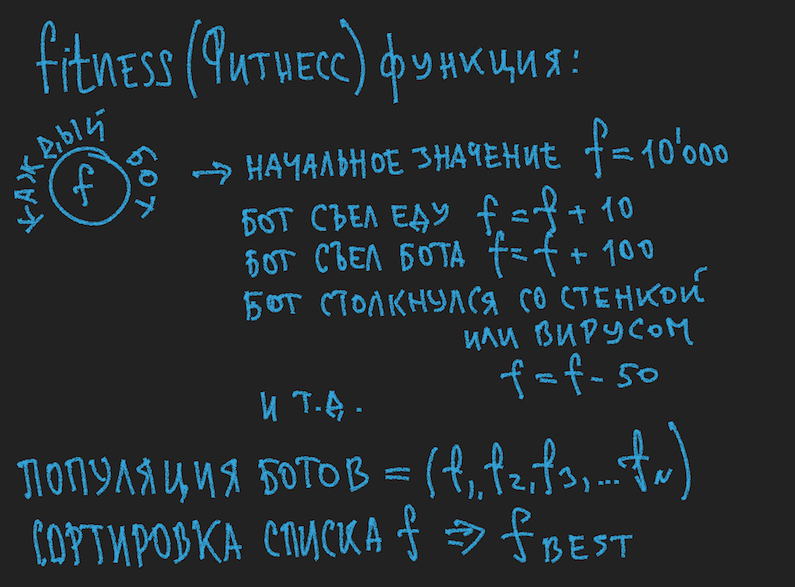 fitness (Фитнесс) функция:
каждый бот
f → начальное значение f = 10'000
бот съел еду f = f + 10
бот съел бота f = f + 100
бот столкнулся со стенкой
или вирусом
f = f - 50
и т.д.
популяция ботов = (f1, f2, f3, ... fN)
сортировка списка f ⇒ f BEST